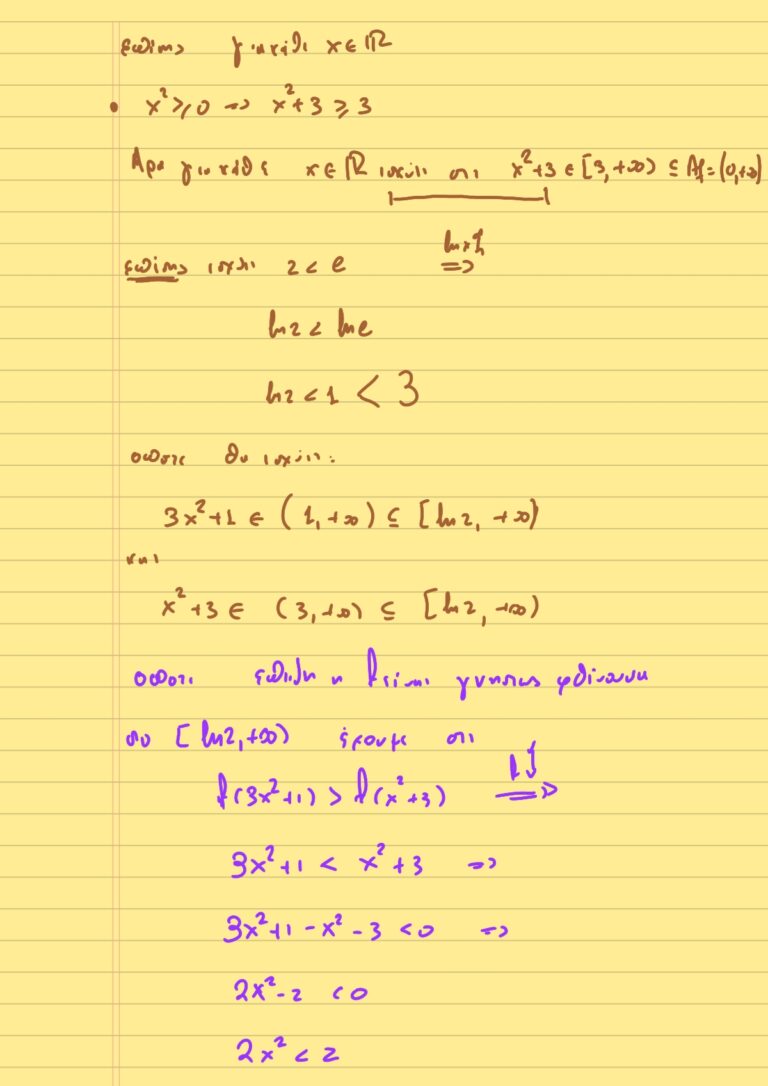 επίσης για κάθε x ∈ ℝ
• x² ≥ 0 => x²+3 ≥ 3
Άρα για κάθε x ∈ ℝ ισχύει οτι x²+3 ∈ [3, +∞) ⊆ Af = (0,+∞)
επίσης ισχύει 2 < e lnx↑ =>
ln2 < lne
ln2 < 1 < 3
οπότε θα ισχύει:
3x²+1 ∈ (1, +∞) ⊆ [ln2, +∞)
και
x²+3 ∈ (3, +∞) ⊆ [ln2, +∞)
οπότε επειδή η f είναι γνησίως φθίνουσα
στο [ln2, +∞) έχουμε οτι
f(3x²+1) > f(x²+3) f↓ =>
3x²+1 < x²+3 =>
3x²+1-x²-3 <0 =>
2x²-2 <0
2x² < 2